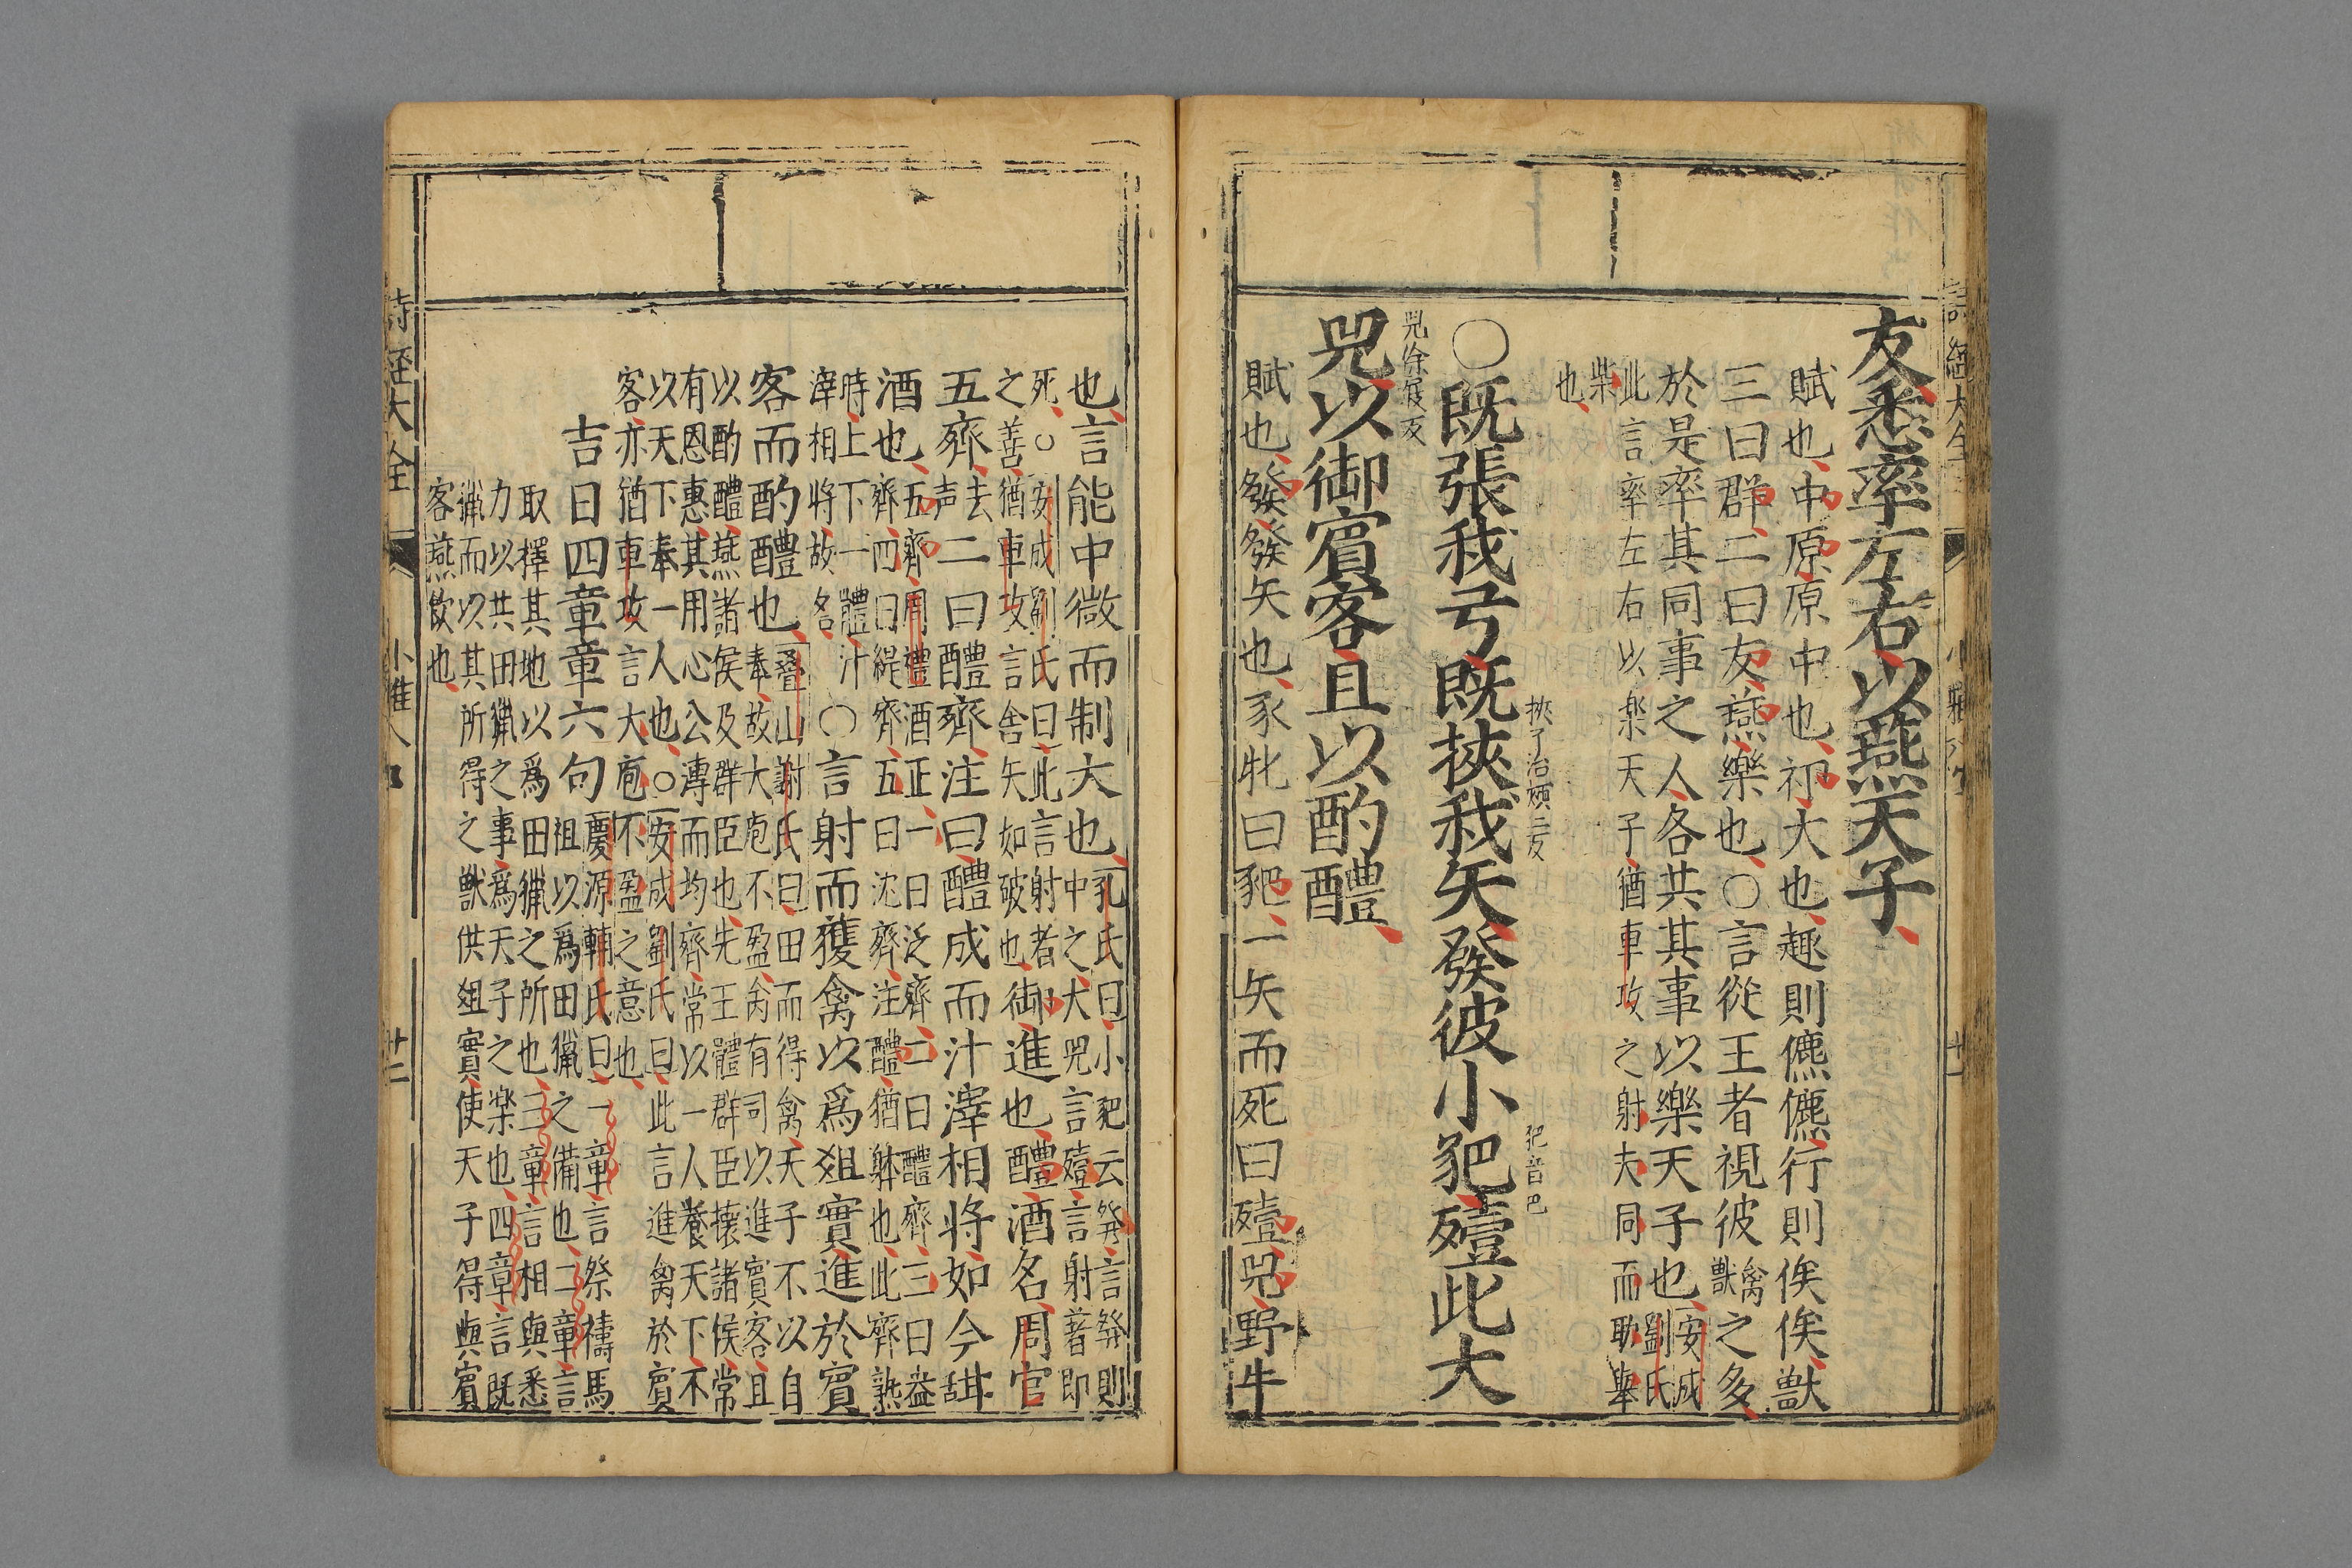 友悉率左右以燕天子
賦也中原原中也祁大也趣則儦儦行則俟俟獸
三曰群二曰友燕樂也○言從王者視彼禽獸之多
於是率其同事之人各共其事以樂天子也安成劉氏曰
此言率左右以楽天子猶車攻之射夫同而助舉
柴也
挾子洽頰二反
豝音巴
○既張我弓既挾我矢發彼小豝殪此大
兕徐履反
兕以御賓客且以酌醴
賦也發發矢也豕牝曰豝一矢而死曰殪兕野牛
也言能中微而制大也孔氏曰小豝云發言發則
中之大兕言殪言射著即
死○安成劉氏曰此言射者
之善猶車攻言舍矢如破也御進也醴酒名周官
五齊去声二曰醴齊注曰醴成而汁滓相将如今甜
酒也五齊周禮酒正一曰泛齊二曰醴齊三曰盎
齊四曰緹齊五曰沈齊注醴猶體也此齊熟
時上下一體汁
滓相将故名○言射而獲禽以爲俎實進於賓
客而酌醴也叠山謝氏曰田而得禽天子不以自
奉故大庖不盈禽有司以進賓客且
以酌醴燕諸侯及群臣也先王體群臣懐諸侯常
有恩惠其用心公溥而均齊常以一人養天下不
以天下奉一人也○安成劉氏曰此言進禽於賓
客亦猶車攻言大庖不盈之意也
吉日四章章六句慶源輔氏曰一章言祭禱馬
祖以爲田獵之備也二章言
取擇其地以爲田獵之所也三章言相與悉
力以共田獵之事爲天子之楽也四章言既
獵而以其所得之獸供俎實使天子得與賓
客燕飲也
詩經大全
小雅八
廿二